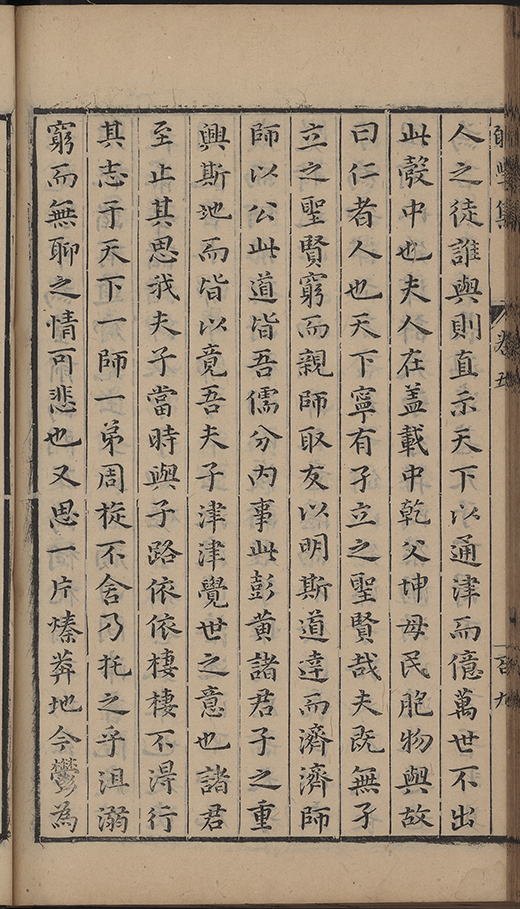 集
卷五
百九
人之徒誰與則直示天下以通津而億萬世不出
此彀中也夫人在盖載中乾父坤母民胞物與故
曰仁者人也天下寧有孑立之聖賢哉夫既無孑
立之聖賢窮而親師取友以明斯道達而濟濟師
師以公此道皆吾儒分內事此彭黄諸君子之重
興斯池而皆以竟吾夫子津津覺世之意也諸君
至止其思我夫子當時與子路依依棲棲不得行
其志于天下一師一弟周旋不舍乃托之乎沮溺
窮而無聊之情可悲也又思一片榛莽地今鬱為